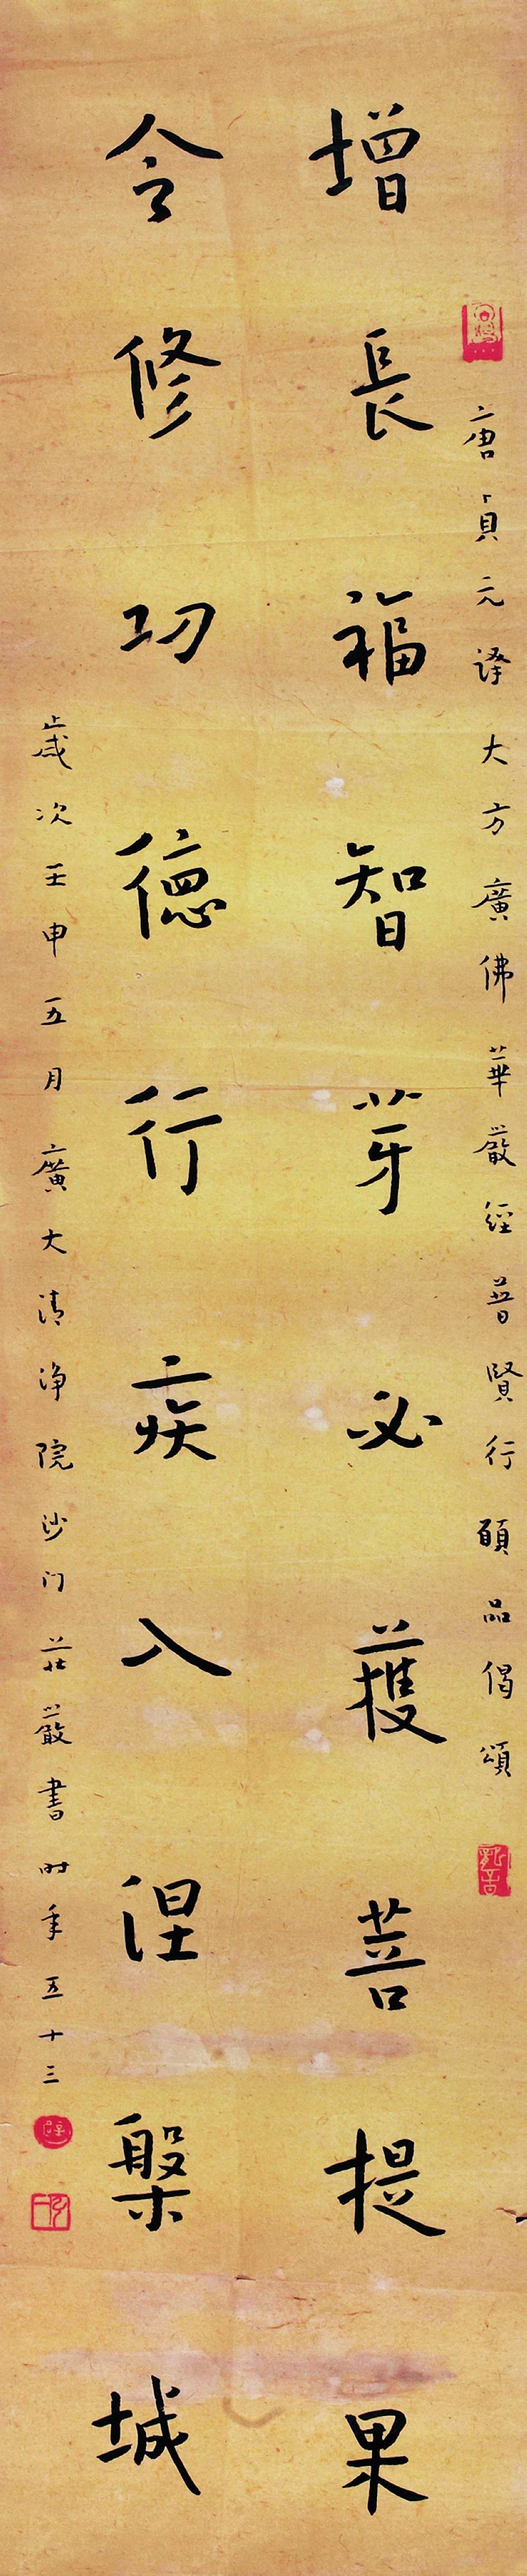 唐貞元譯大方廣佛華嚴經普賢行願品偈頌
增長福智芽必獲菩提果
令修功德行疾入涅槃城
歲次壬申五月廣大清淨院沙门莊嚴書时年五十三